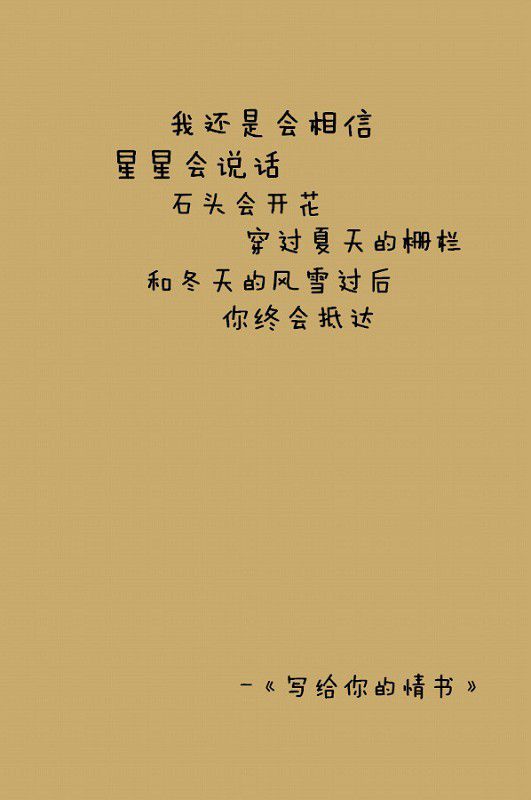 我还是会相信
星星会说话
石头会开花
穿过夏天的栅栏
和冬天的风雪过后
你终会抵达
-《写给你的情书》